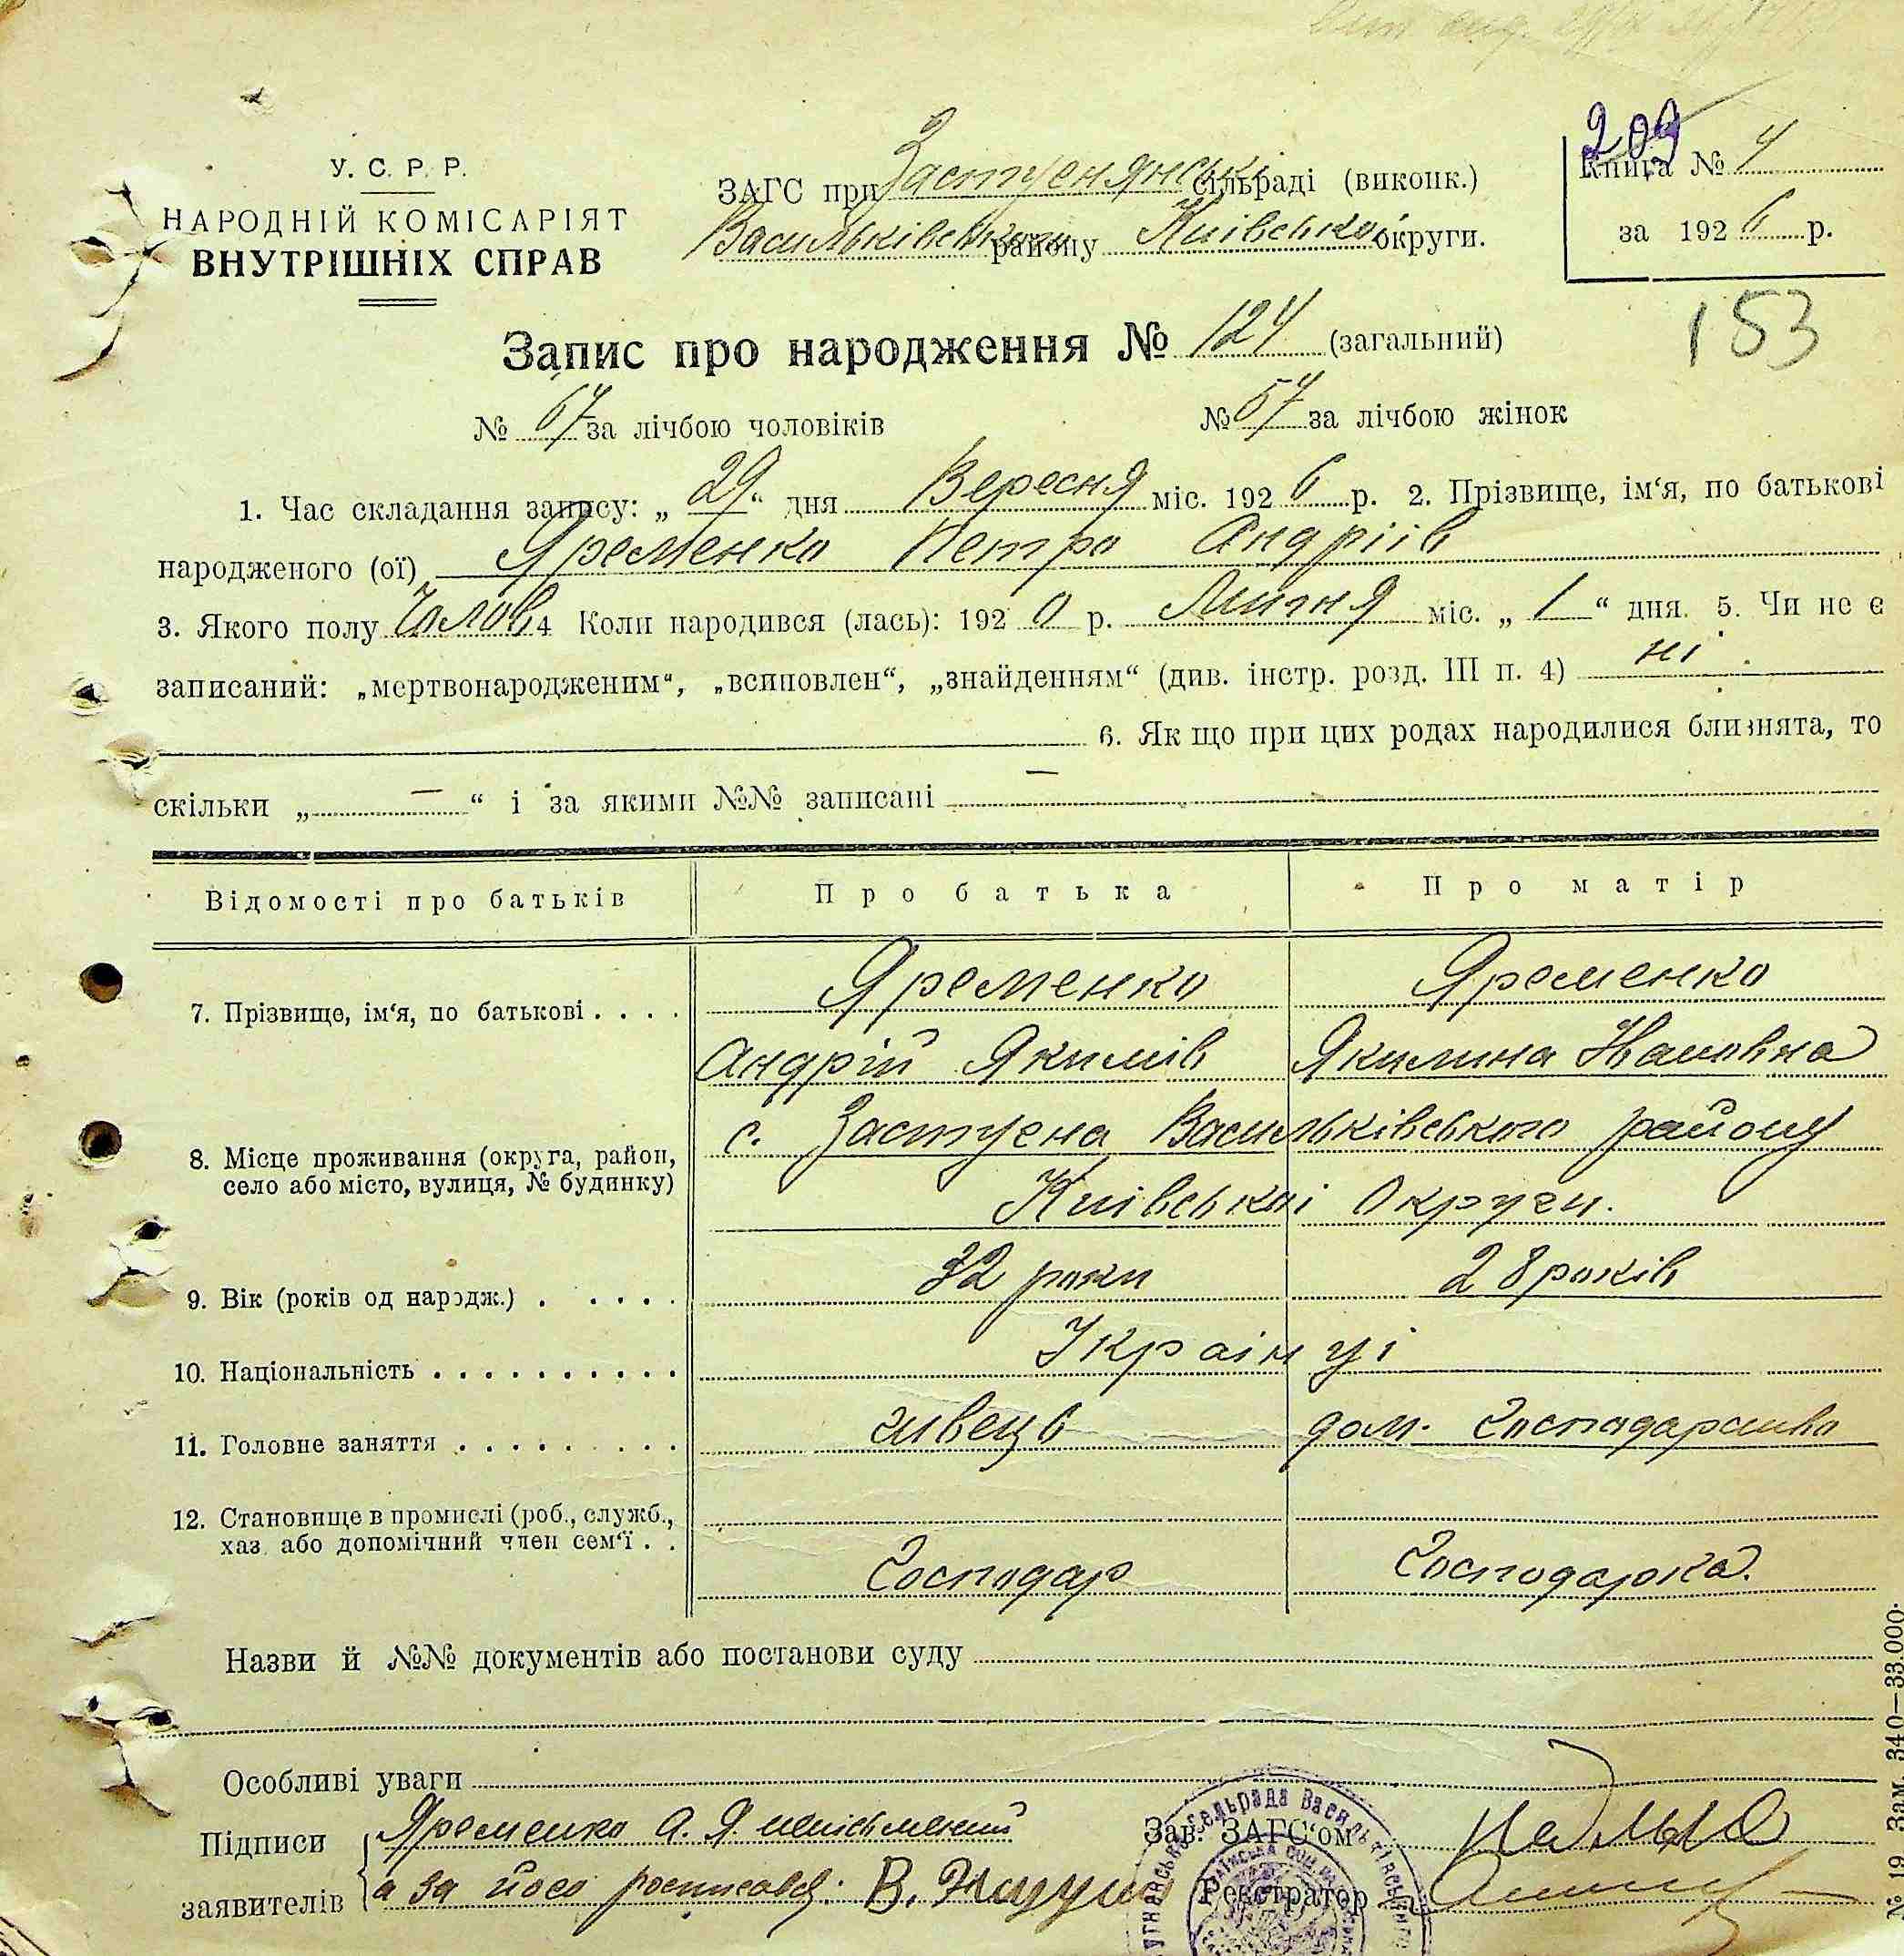 209
У. С. Р. Р.
НАРОДНІЙ КОМІСАРІЯТ
ВНУТРІШНІХ СПРАВ
ЗАГС при Застугнянські сільраді (виконк.)
Васильківського району Київської округи.
Книга № 4
за 1926 р.
153
Запис про народження № 124 (загальний)
№ 67 за лічбою чоловіків № 57 за лічбою жінок
1. Час складання запису: „29“ дня Вересня міс. 1926 р. 2. Прізвище, ім‘я, по батькові
народженого (ої) Яременко Петро Андріів
3. Якого полу Чолов. 4 Коли народився (лась): 1920 р. Липня міс. „1“ дня. 5. Чи не є
записаний: „мертвонародженим“, „всиновлен“, „знайденням“ (див. інстр. розд. III п. 4) ні
6. Як що при цих родах народилися близнята, то
скільки „ — “ і за якими №№ записані —
Відомості про батьків Про батька Про матір
7. Прізвище, ім‘я, по батькові . . . . Яременко Яременко
Андрій Якимів Якилина
с. Застугна Васильківського району
8. Місце проживання (округа, район,
село або місто, вулиця, № будинку)
Киівськоі Округи.
9. Вік (років од народж.) . . . . . 32 роки 28 років
10. Національність . . . . . . . . . . Украінці
11. Головне заняття . . . . . . . . . швець дом. Господарство
12. Становище в промислі (роб., служб.,
хаз. або допомічний член сем‘ї . .
Господар Господарка.
Назви й №№ документів або постанови суду
Особливі уваги
Підписи Яременко А. Я неписьменний
заявителів а за його росписався: В.
Зав. ЗАГС‘ом
Реєстратор
№ 19 Зам. 340—33.000.